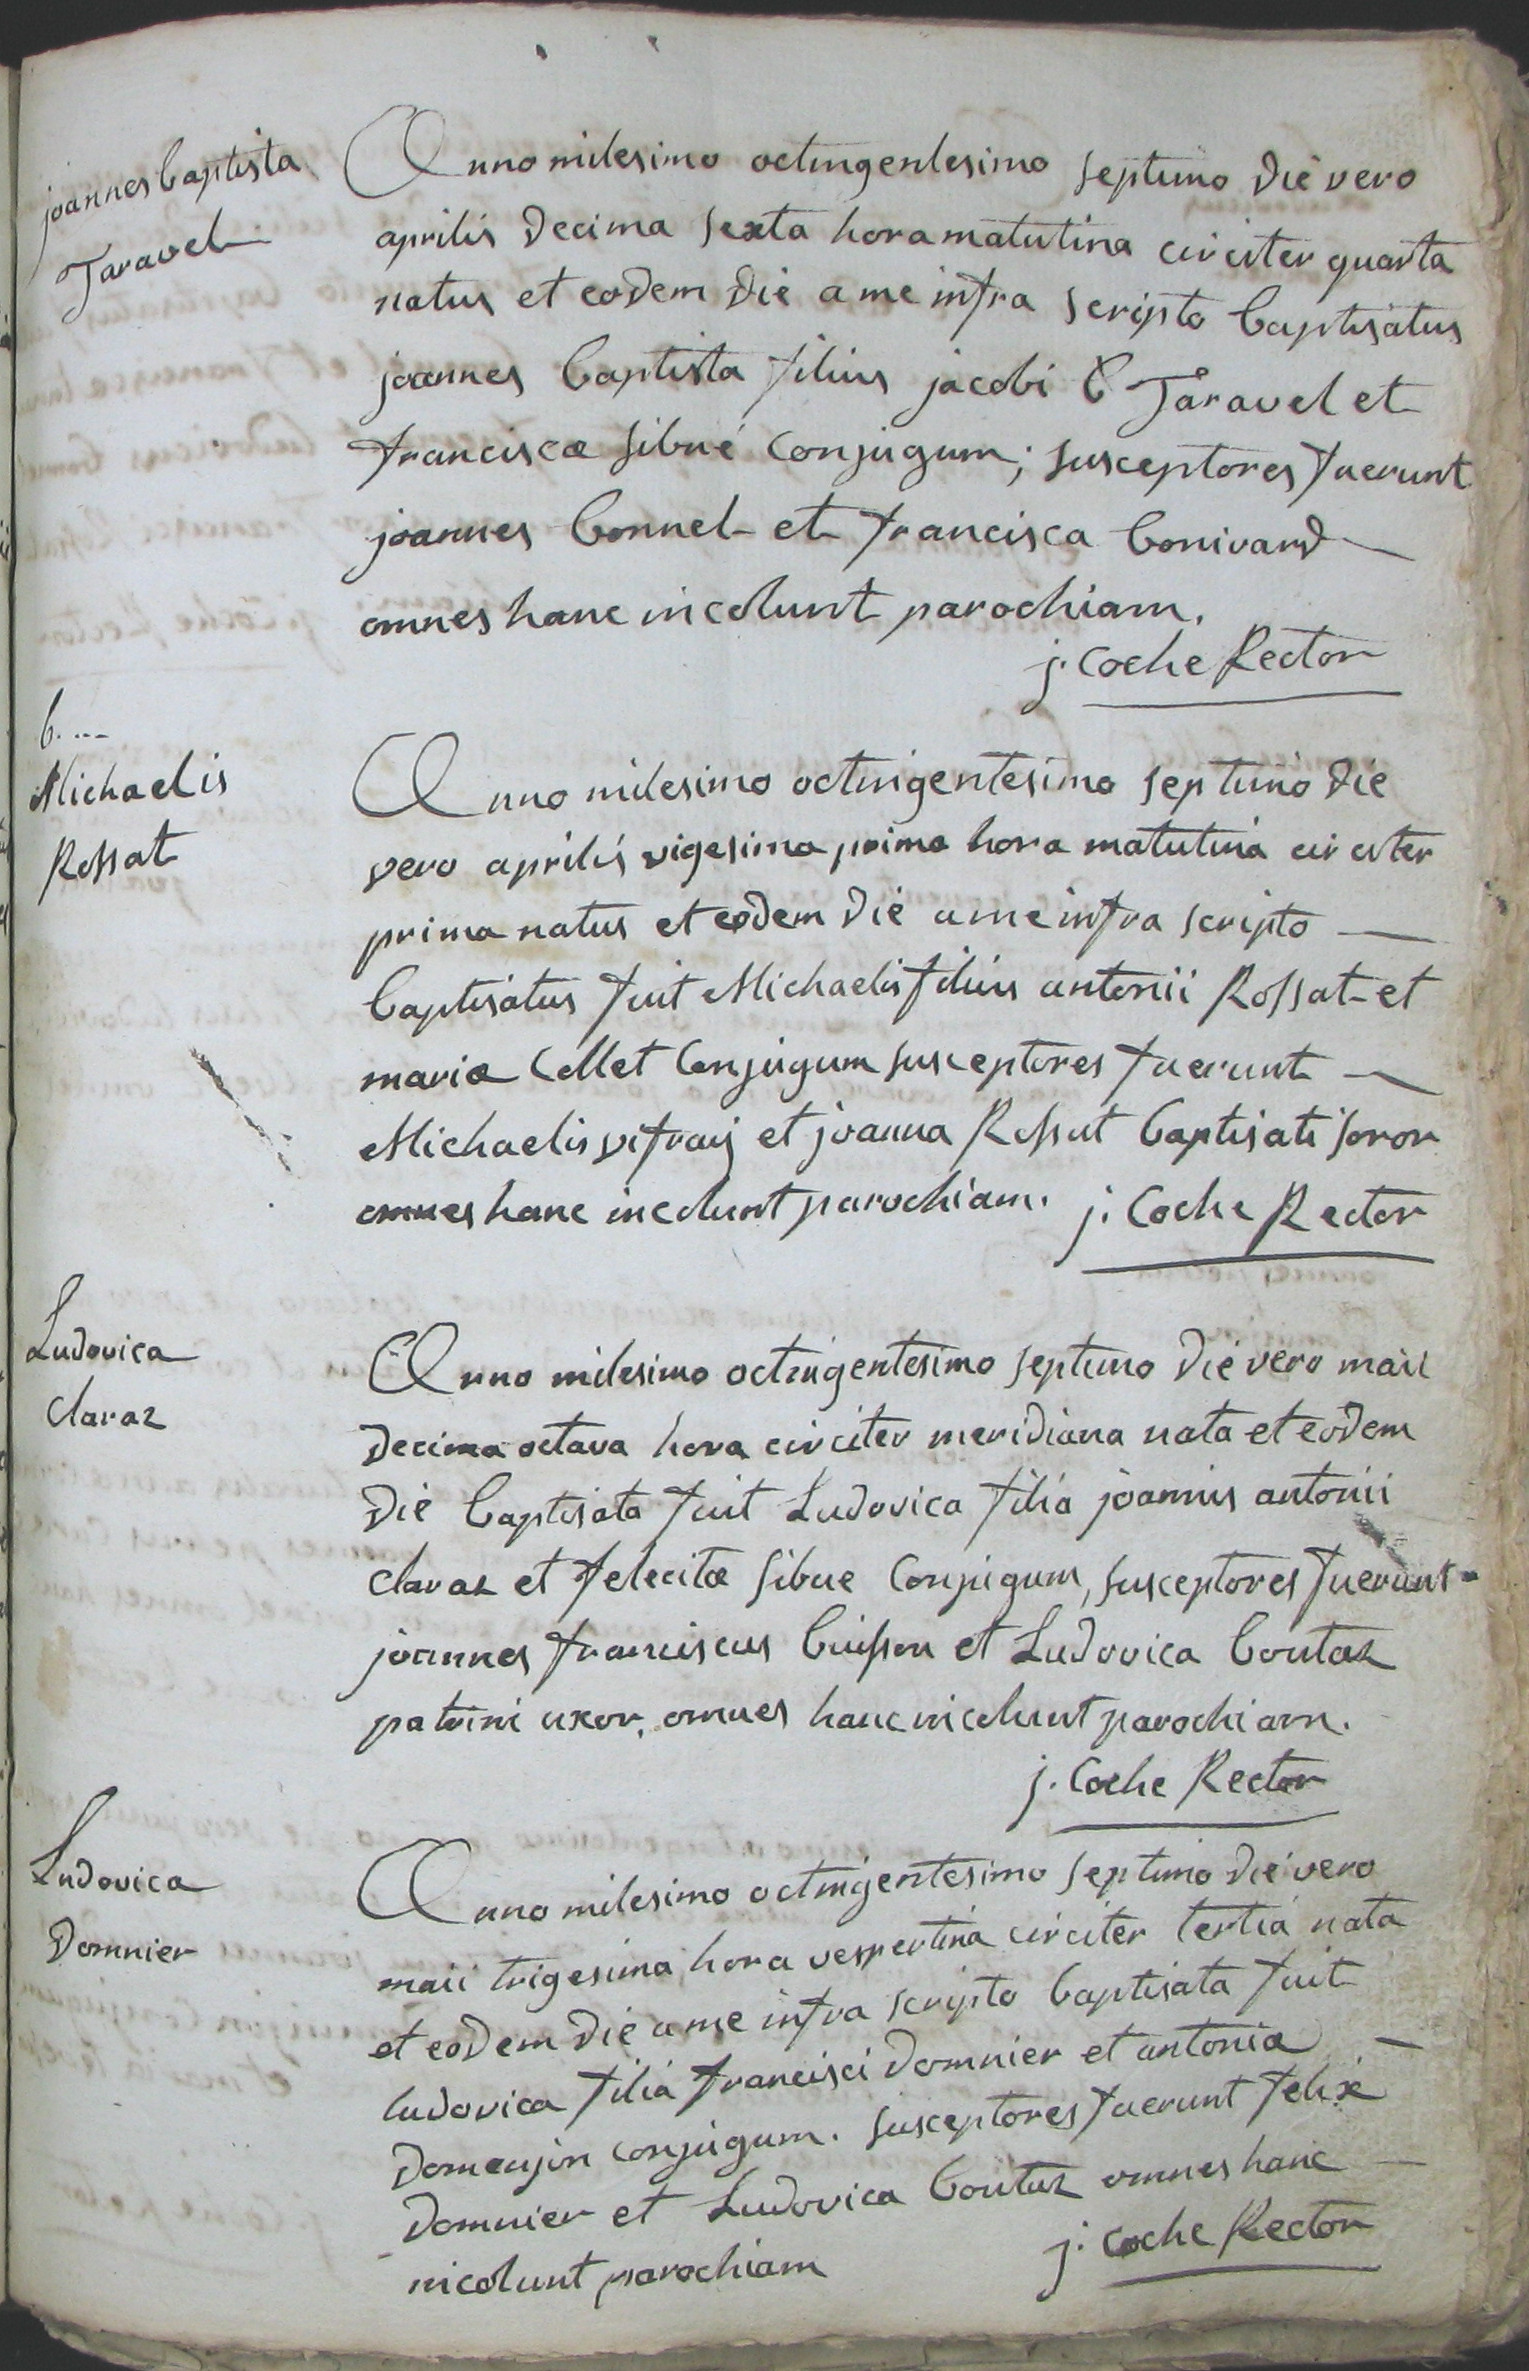 joannes baptista
Taravel
Anno milesimo octingentesimo septimo die vero
aprilis decima sexta hora matutina circiter quarta
natus et eodem die a me infra scripto baptisatus
joannes baptista filius jacobi b Taravel et
franciscæ sibué conjugum; susceptores fuerunt
joannes bonnel et francisca bonivard
omnes hanc incolunt parochiam.
j. Coche Rector
b. ...
Michaelis
Rossat
Anno milesimo octingentesimo septimo die
vero aprilis vigesima prima hora matutina circiter
prima natus et eodem die a me infra scripto
baptisatus fuit Michaelis filius antonii Rossat et
mariæ Collet Conjugum susceptores fuerunt
Michaelis vifraij et joanna Rossat baptisati soror
omnes hanc incolunt parochiam. j. Coche Rector
Ludovica
Claraz
Anno milesimo octingentesimo septimo die vero maii
decima octava hora circiter meridiana nata et eodem
die baptisata fuit Ludovica filia joannis antonii
Claraz et felecitæ sibue Conjugum, susceptores fuerunt
joannes franciscus buisson et Ludovica boutaz
patrini uxor. omnes hanc incolunt parochiam.
j. Coche Rector
Ludovica
Domnier
Anno milesimo octingentesimo septimo die vero
maii trigesima hora vespertina circiter tertia nata
et eodem die a me infra scripto baptisata fuit
ludovica filia francisci domnier et antonia
domenjon conjugum. susceptores fuerunt felix
domnier et Ludovica boutaz omnes hanc
incolunt parochiam j. Coche Rector